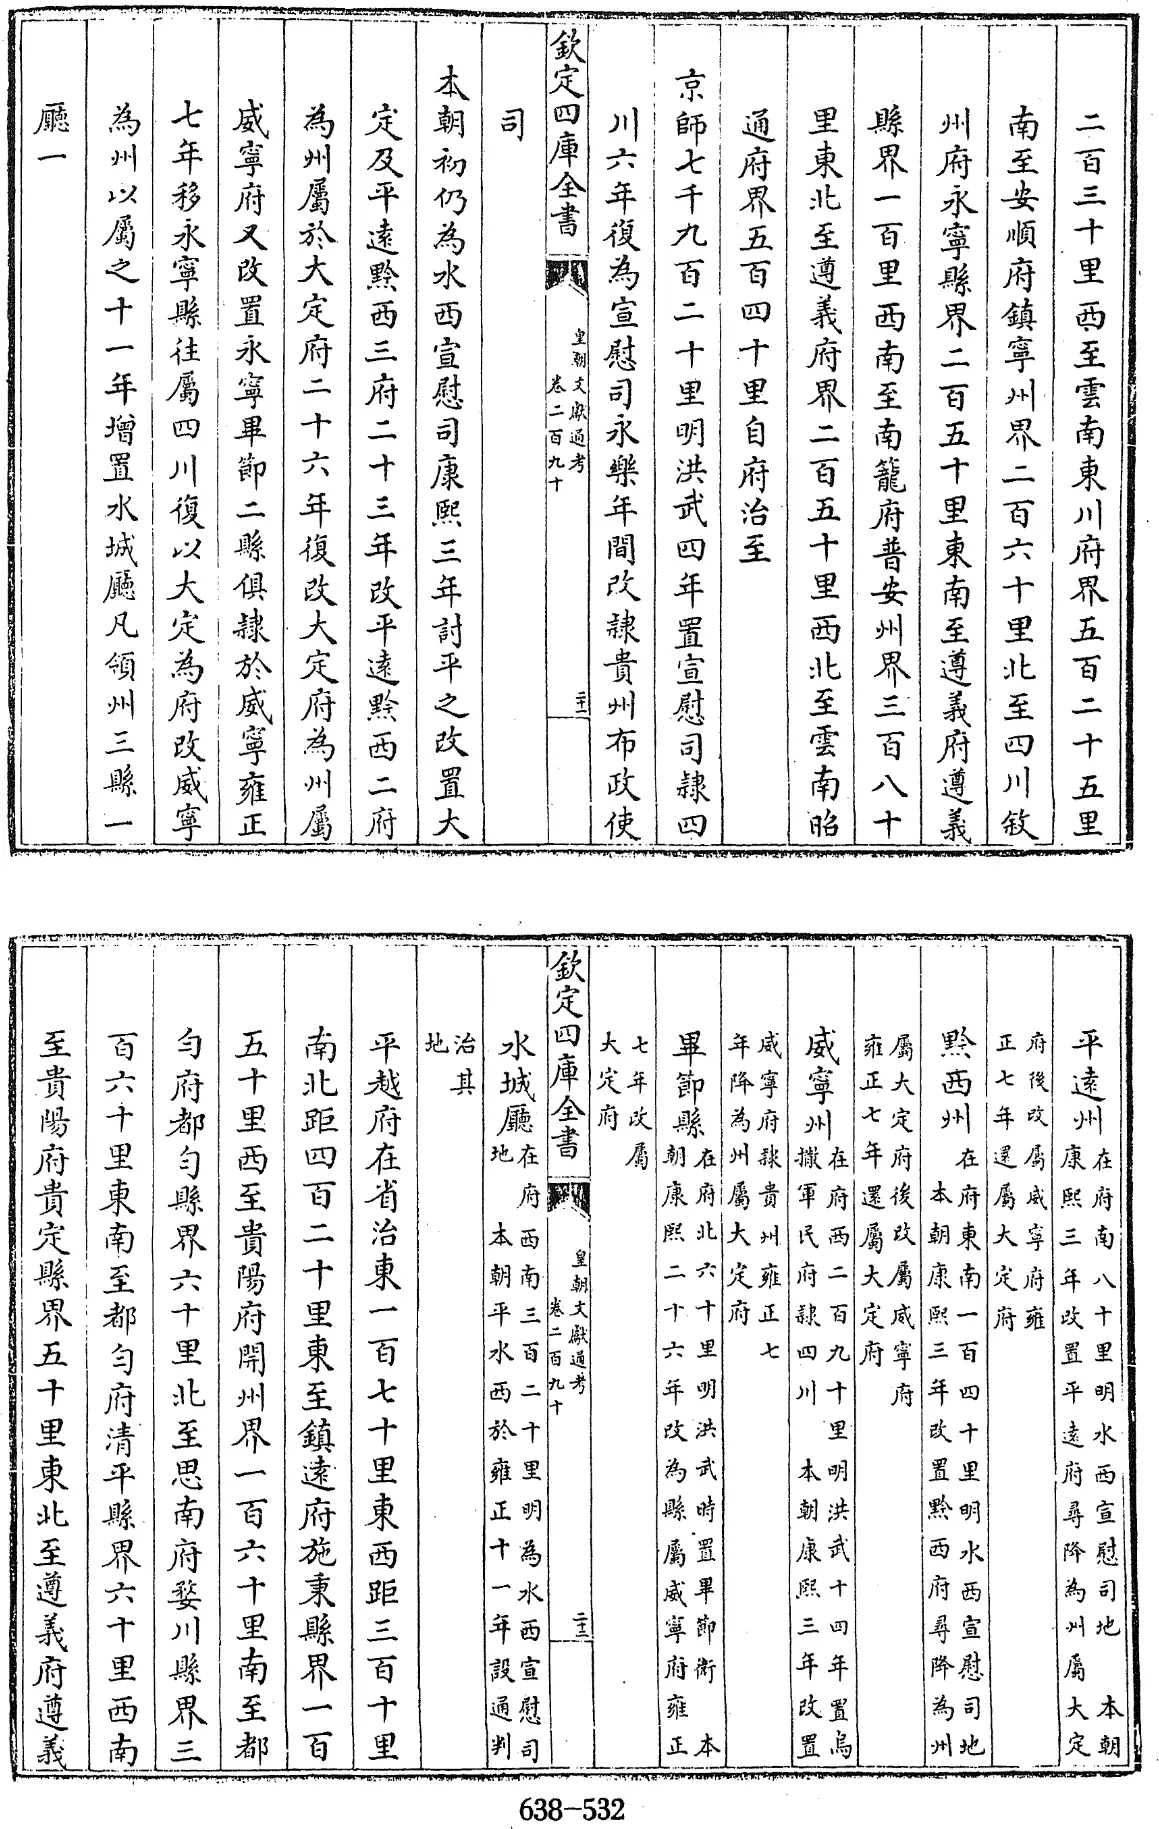 二百三十里西至雲南東川府界五百二十五里
南至安順府鎮寧州界二百六十里北至四川敘
州府永寧縣界二百五十里東南至遵義府遵義
縣界一百里西南至南籠府普安州界三百八十
里東北至遵義府界二百五十里西北至雲南昭
通府界五百四十里自府治至
京師七千九百二十里明洪武四年置宣慰司隸四
川六年復為宣慰司永樂年間改隸貴州布政使
欽定四庫全書
皇朝文獻通考
卷二百九十
二十一
司
本朝初仍為水西宣慰司康熙三年討平之改置大
定及平遠黔西三府二十三年改平遠黔西二府
為州屬於大定府二十六年復改大定府為州屬
威寧府又改置永寧畢節二縣俱隸於威寧雍正
七年移永寧縣往屬四川復以大定為府改威寧
為州以屬之十一年增置水城廳凡領州三縣一
廳一
平遠州
在府南八十里明水西宣慰司地 本朝
康熙三年改置平遠府尋降為州屬大定
府後改屬威寧府雍
正七年還屬大定府
黔西州
在府東南一百四十里明水西宣慰司地
本朝康熙三年改置黔西府尋降為州
屬大定府後改屬威寧府
雍正七年還屬大定府
威寧州
在府西二百九十里明洪武十四年置烏
撒軍民府隸四川 本朝康熙三年改置
威寧府隸貴州雍正七
年降為州屬大定府
畢節縣
在府北六十里明洪武時置畢節衛 本
朝康熙二十六年改為縣屬威寧府雍正
七年改屬
大定府
欽定四庫全書
皇朝文獻通考
卷二百九十
二十二
水城廳
在府西南三百二十里明為水西宣慰司
地 本朝平水西於雍正十一年設通判
治其
地
平越府在省治東一百七十里東西距三百十里
南北距四百二十里東至鎮遠府施秉縣界一百
五十里西至貴陽府開州界一百六十里南至都
勻府都勻縣界六十里北至思南府婺川縣界三
百六十里東南至都勻府清平縣界六十里西南
至貴陽府貴定縣界五十里東北至遵義府遵義
638-532